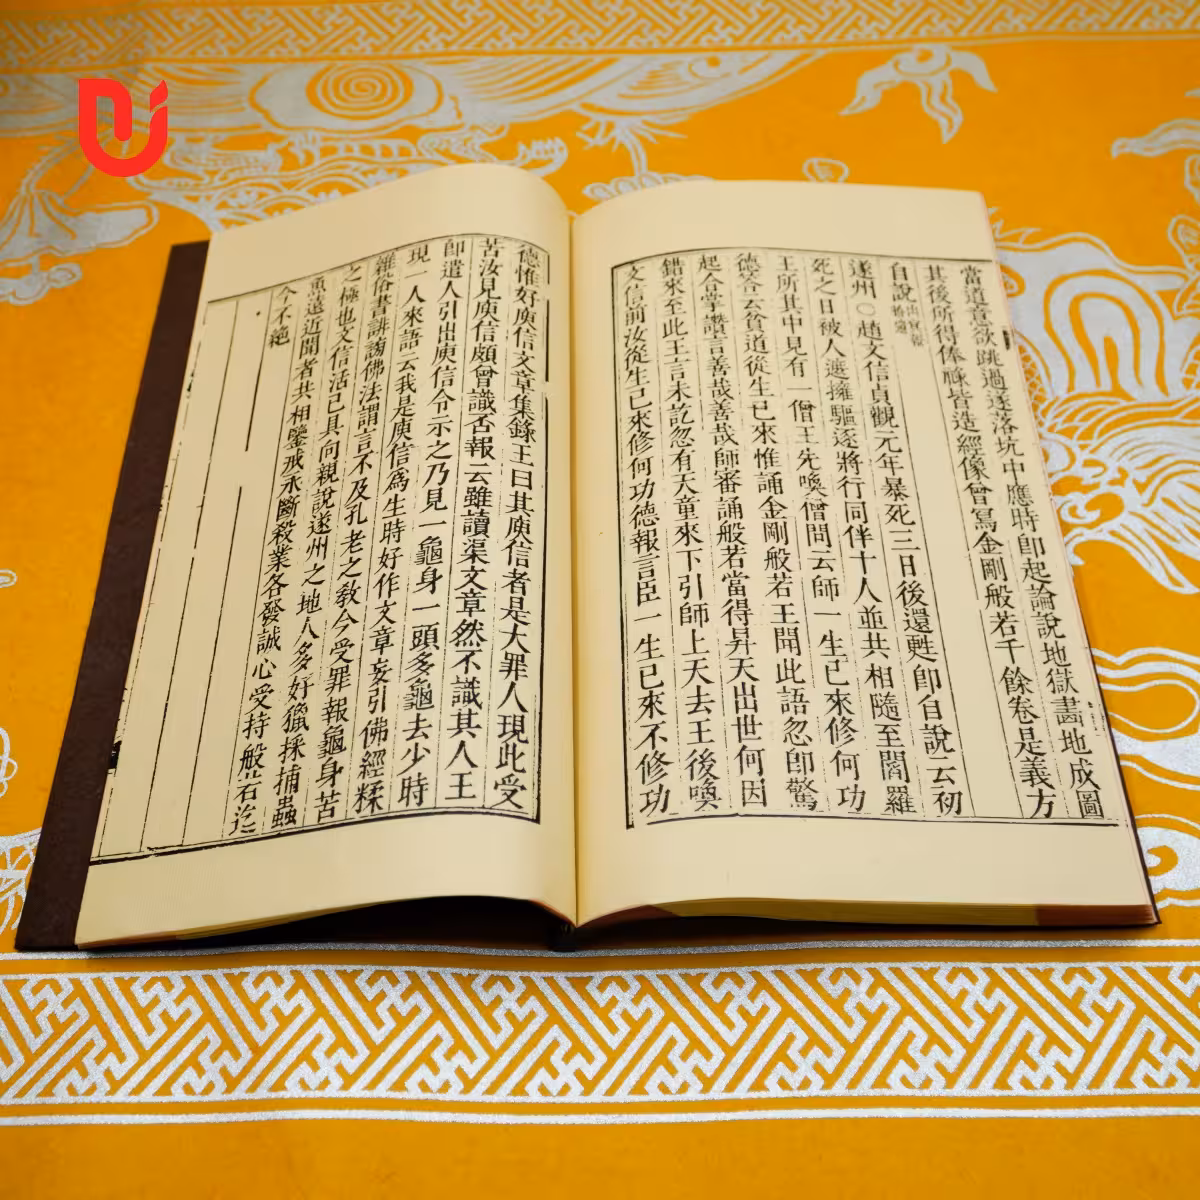 當道意欲跳過遂落坑中應時卽起論說地獄畵地成圖
其後所得俸祿皆造經像曾寫金剛般若千餘卷是義方
自說出冥報拾遺
遂州〇趙文信貞觀元年暴死三日後還甦卽自說云初
死之日被人遮擁驅逐將行同伴十人並共相隨至閻羅
王所其中見有一僧王先喚僧問云師一生已來修何功
德答云貧道從生已來惟誦金剛般若王聞此語忽卽驚
起合掌讚言善哉善哉師審誦般若當得昇天出世何因
錯來至此王言未訖忽有天童來下引師上天去王後喚
文信前汝從生已來修何功德報言臣一生已來不修功
德惟好庾信文章集錄王曰其庾信者是大罪人現此受
苦汝見庾信頗曾識否報云雖讀渠文章然不識其人王
卽遣人引出庾信令示之乃見一龜身一頭多龜去少時
現一人來語云我是庾信爲生時好作文章妄引佛經糅
雜俗書誹謗佛法謂言不及孔老之敎今受罪報龜身苦
之極也文信活已具向親說遂州之地人多好獵採捕蟲
魚遠近聞者共相鑒戒永斷殺業各發誠心受持般若迄
今不絕